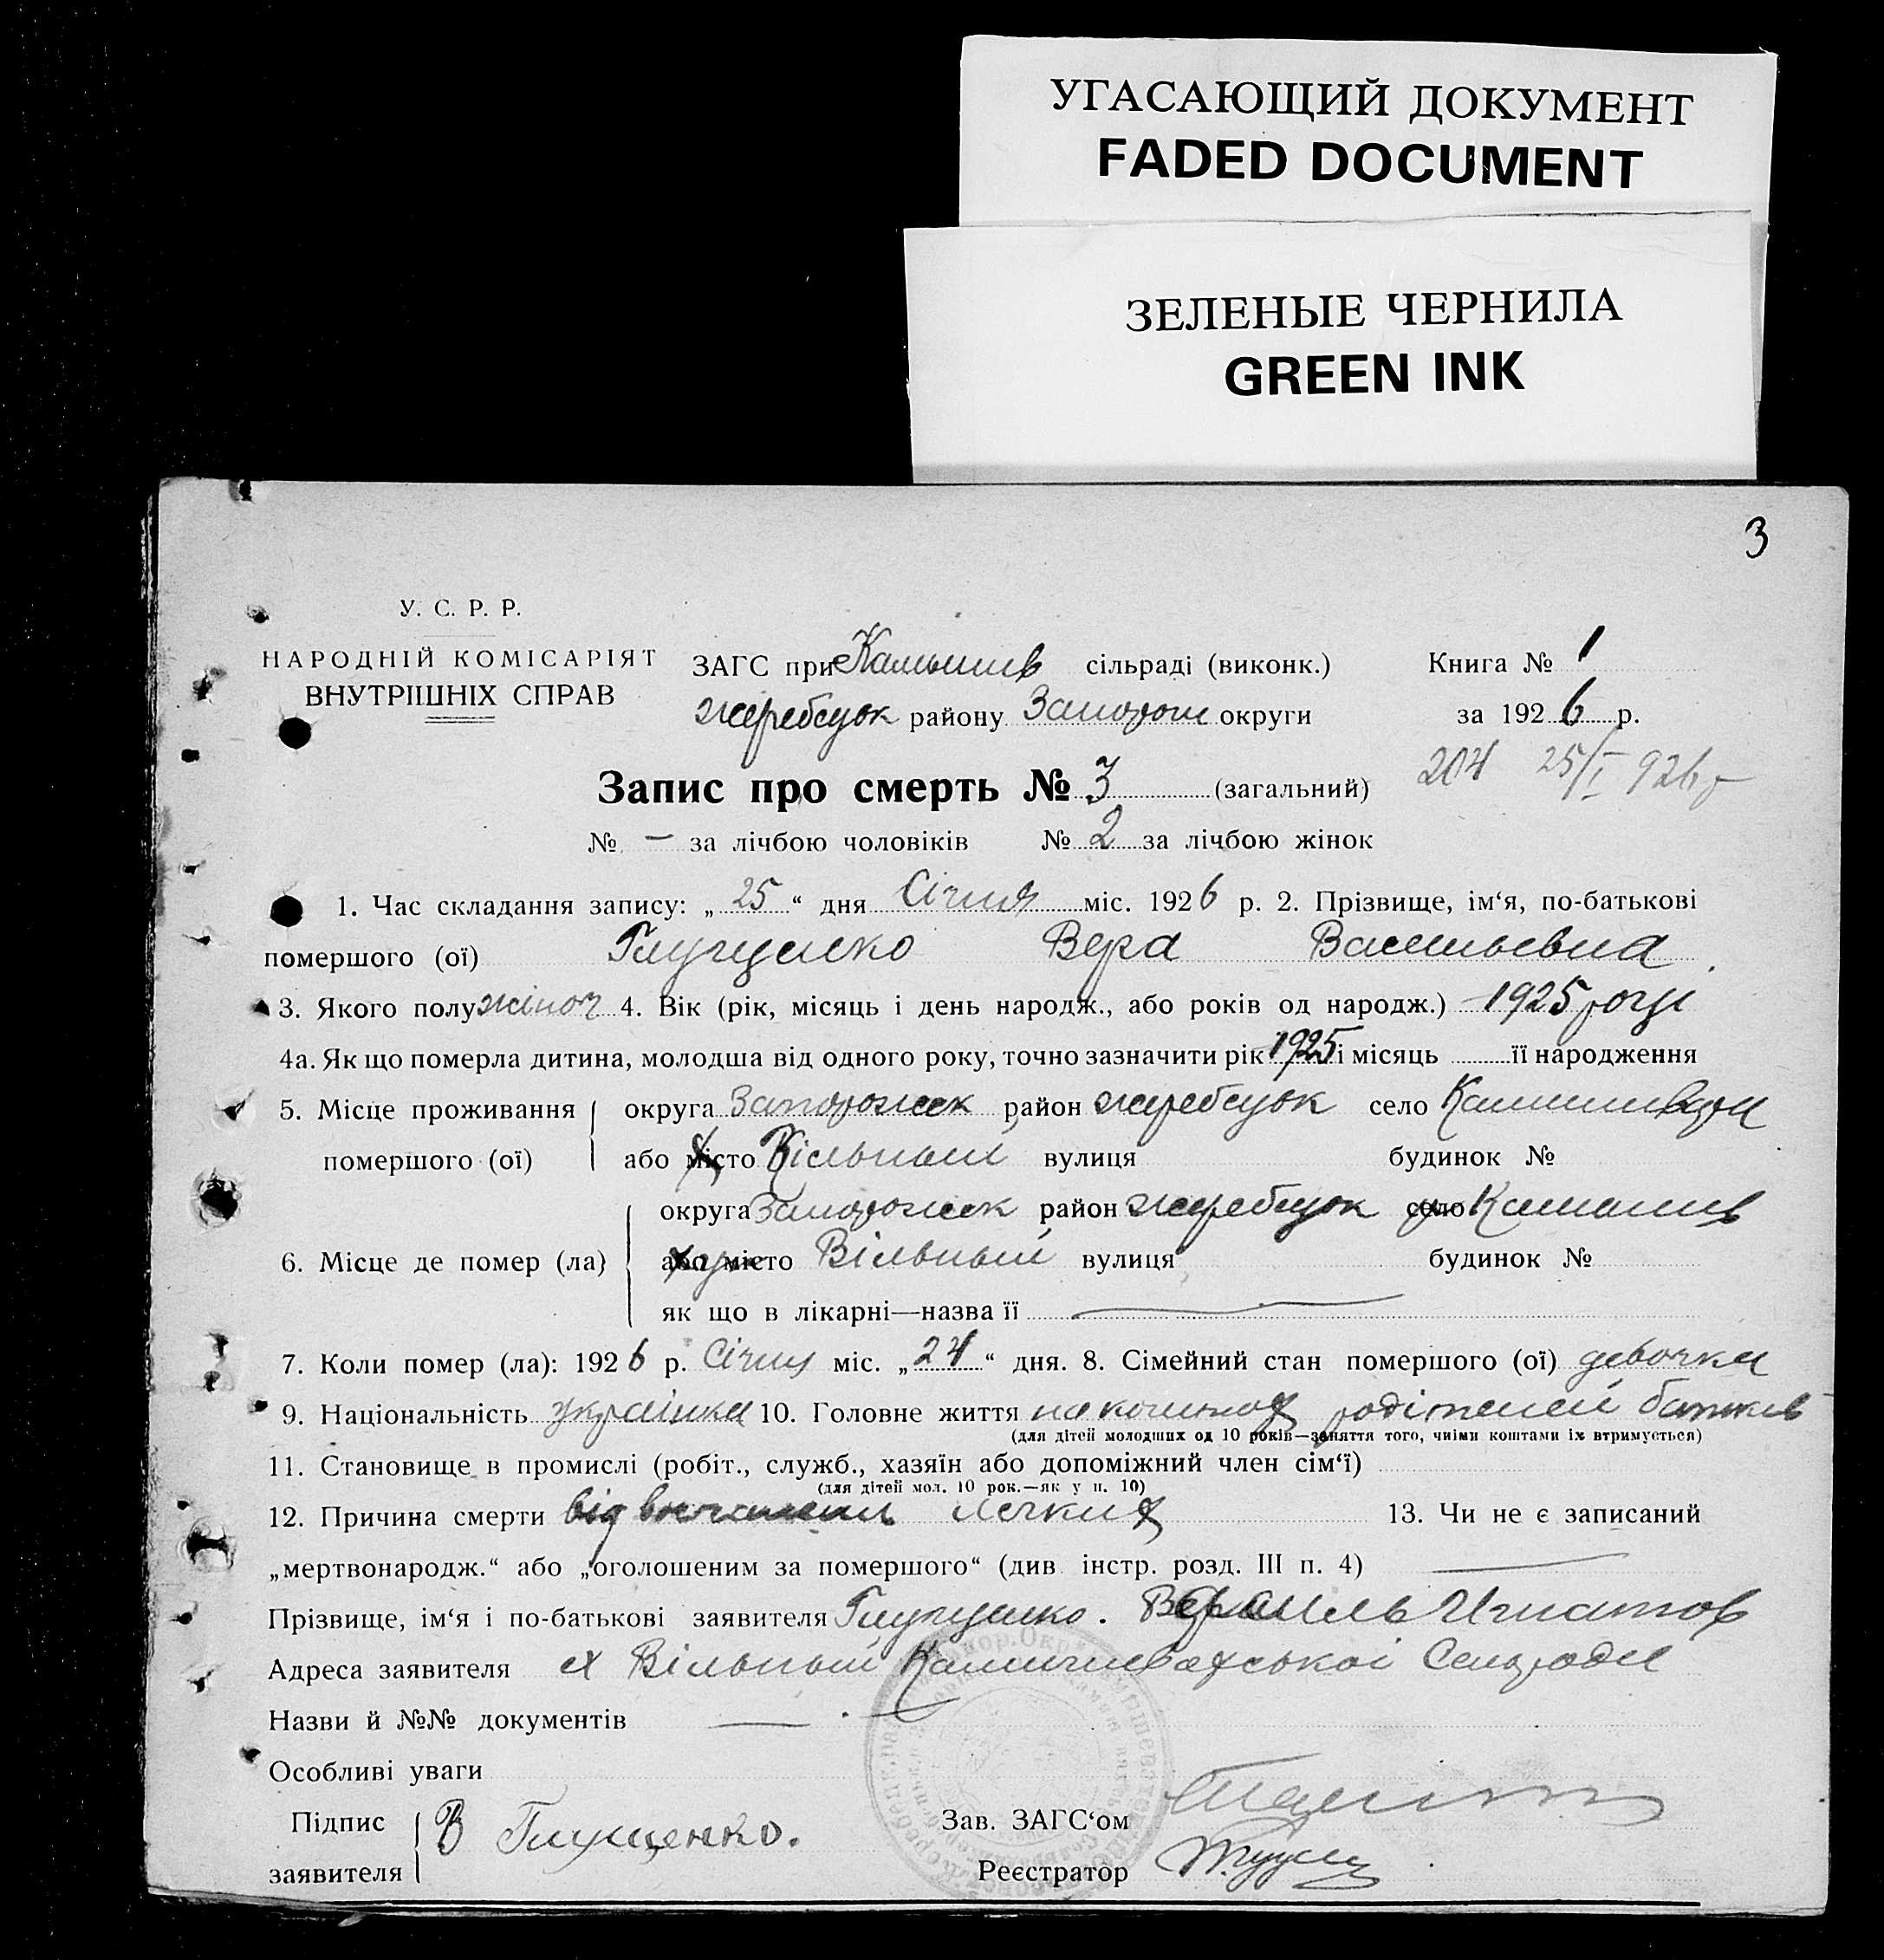 УГАСАЮЩИЙ ДОКУМЕНТ
FADED DOCUMENT
ЗЕЛЕНЫЕ ЧЕРНИЛА
GREEN INK
3
У. С. Р. Р.
НАРОДНІЙ КОМІСАРІЯТ
ВНУТРІШНІХ СПРАВ
ЗАГС при Камышив сільраді (виконк.)
Книга № 1
жеребецьк району Запорож округи
за 1926 р.
204 25/I 926 р
Запис про смерть № 3 (загальний)
№ — за лічбою чоловіків № 2 за лічбою жінок
1. Час складання запису: „25“ дня Січня міс. 1926 р. 2. Прізвище, ім‘я, по-батькові
помершого (ої) Глущенко Вера Васильевна
3. Якого полу жіноч 4. Вік (рік, місяць і день народж., або років од народж.) 1925 році
4а. Як що померла дитина, молодша від одного року, точно зазначити рік 1925 і місяць її народження
5. Місце проживання помершого (ої) округа Запорожск район жеребецьк село
або місто Вільный вулиця будинок №
6. Місце де помер (ла) округа Запорожск район жеребецьк село Камышив
або місто Вільный вулиця будинок №
як що в лікарні—назва її —
7. Коли помер (ла): 1926 р. Січня міс. „24“ дня. 8. Сімейний стан помершого (ої) девочка
9. Національність українка 10. Головне життя родітелей батьків
(для дітей молодших од 10 років—заняття того, чиїми коштами їх втримується)
11. Становище в промислі (робіт., служб., хазяїн або допоміжний член сім‘ї)
(для дітей мол. 10 рок.—як у п. 10)
12. Причина смерти від 13. Чи не є записаний
„мертвонародж.“ або „оголошеним за помершого“ (див інстр. розд. III п. 4) —
Прізвище, ім‘я і по-батькові заявителя Глущенко. Игнатов
Адреса заявителя х Вільный Сельради
Назви й №№ документів — . —
Особливі уваги
Підпис заявителя В Глущенко.
Зав. ЗАГС‘ом
Реєстратор